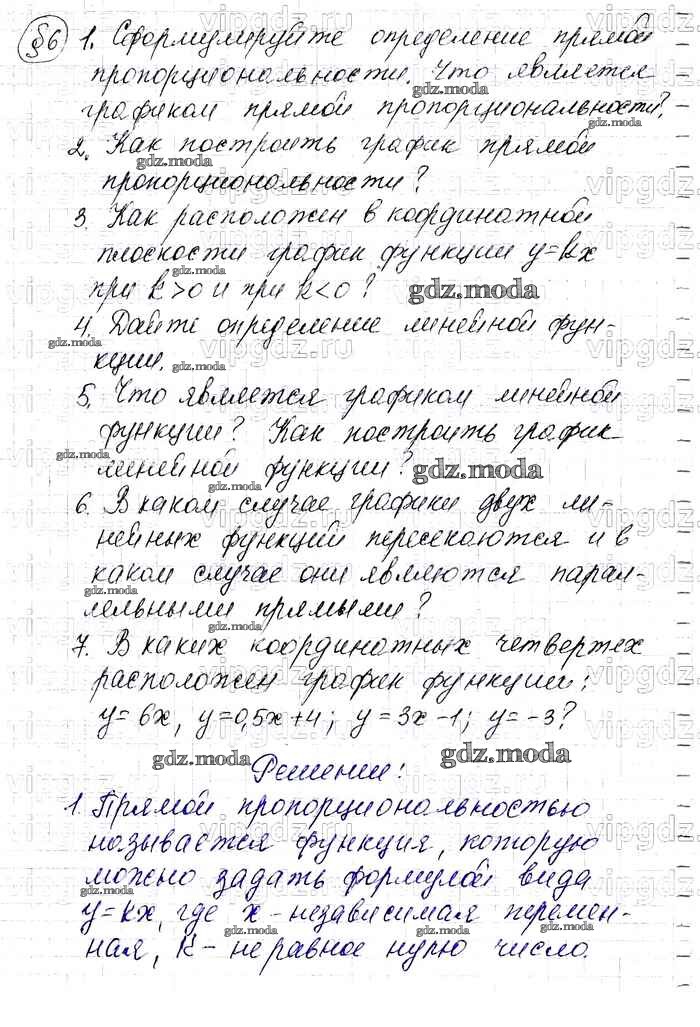 §6 1. Сформулируйте определение прямой
пропорциональности. Что является
графиком прямой пропорциональности?
2. Как построить график прямой
пропорциональности?
3. Как расположен в координатной
плоскости график функции y=kx
при k>0 и при k<0?
4. Дайте определение линейной функ-
ции.
5. Что является графиком линейной
функции? Как построить график
линейной функции?
6. В каком случае графики двух ли-
нейных функций пересекаются и в
каком случае они являются парал-
лельными прямыми?
7. В каких координатных четвертях
расположен график функции:
y=6x, y=0,5x+4; y=3x-1; y=-3?
Решение:
1. Прямой пропорциональностью
называется функция, которую
можно задать формулой вида
y=kx, где x-независимая перемен-
ная, k- не равное нулю число.
gdz.moda
vipgdz.ru